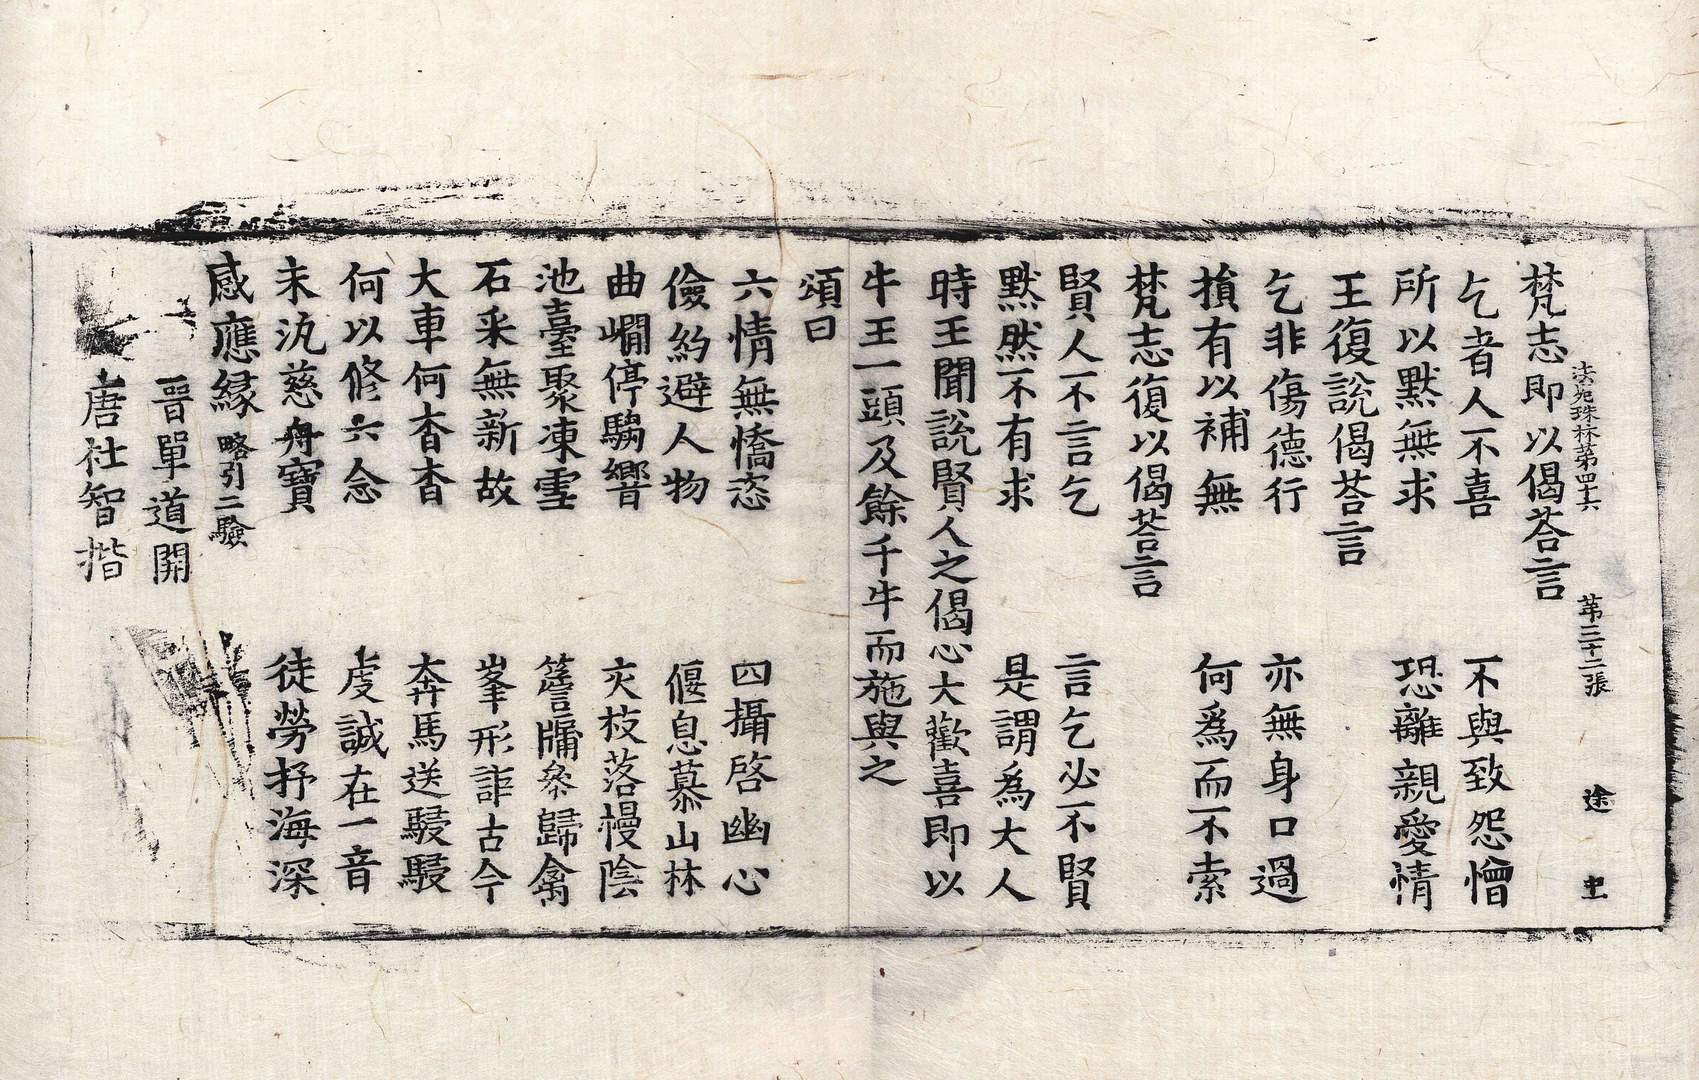 法苑珠林第四十六 第三十二張 途
梵志即以偈荅言
乞者人不喜 不與致怨憎
所以默無求 恐離親愛情
王復說偈荅言
乞非傷德行 亦無身口過
損有以補無 何為而不索
梵志復以偈荅言
賢人不言乞 言乞必不賢
默然不有求 是謂為大人
時王聞說賢人之偈心大歡喜即以
牛王一頭及餘千牛而施與之
頌曰
六情無憍恣 四攝啓幽心
儉約避人物 偃息慕山林
曲㵎停騶響 交枝落慢陰
池臺聚凍雪 簷牗參歸禽
石采無新故 峯形詎古今
大車何杳杳 奔馬送駸駸
何以修六念 虔誠在一音
未汎慈舟寶 徒勞抒海深
感應緣 略引二驗
晉單道開
唐杜智揩